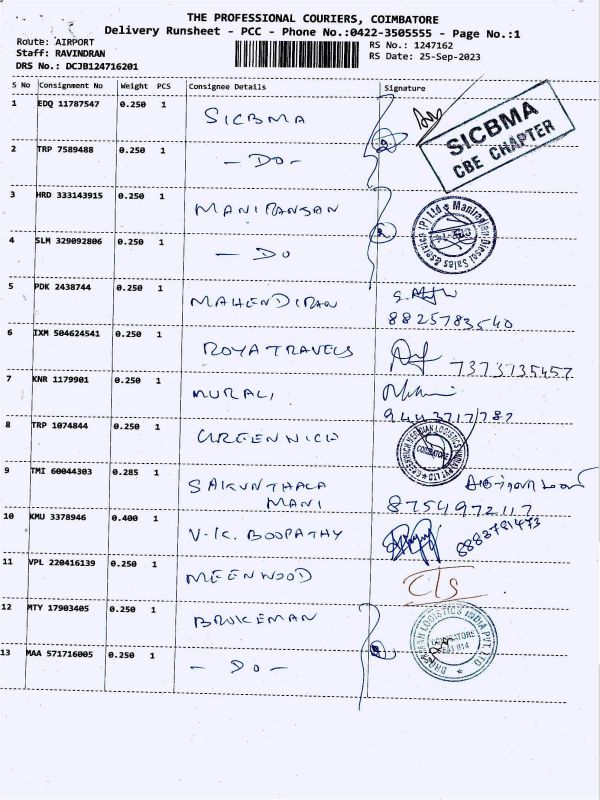 THE PROFESSIONAL COURIERS, COIMBATORE
Delivery Runsheet - PCC - Phone No.:0422-3505555 - Page No.:1
Route: AIRPORT
RS No.: 1247162
Staff: RAVINDRAN
RS Date: 25-Sep-2023
DRS No.: DCJB124716201
S No Consignment No Weight PCS Consignee Details Signature
1 EDQ 11787547 0.250 1 SICBMA
SICBMA
CBE CHAPTER
2 TRP 7589488 0.250 1 - DO -
3 HRD 333143915 0.250 1
4 SLM 329092806 0.250 1 - DO
5 PDK 2438744 0.250 1 MAHENDIRAN
8825783540
6 IXM 504624541 0.250 1 ROYA TRAVELS 7373735457
7 KNR 1179901 0.250 1 MURALI
8 TRP 1074844 0.250 1 GREENWICH
COIMBATORE
9 TMI 60044303 0.285 1 SAKUNTHALA
MANI 8754972117
10 KMU 3378946 0.400 1 V.K. BOOPATHY 8883781473
11 VPL 220416139 0.250 1 MEENWOOD
12 MTY 17903405 0.250 1 BRUKEMAN
13 MAA 571716005 0.250 1 - DO -